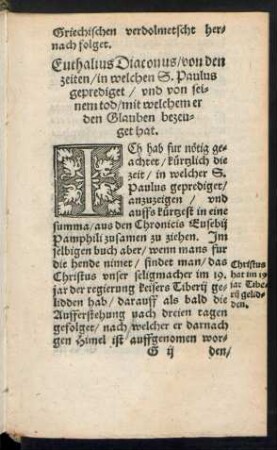 Griechischen verdolmetscht her-
nach folget.
Euthalius Diaconus/von den
zeiten/in welchen S. Paulus
geprediget / vnd von sei-
nem tod/mit welchem er
den Glauben bezeu-
get hat.
ICh hab fur nötig ge-
achtet/kürtzlich die
zeit / in welcher S.
Paulus geprediget/
anzuzeigen / vnd
auffs kürtzest in eine
summa/aus den Chronicis Eusebij
Pamphili zusamen zu ziehen. Im
selbigen buch aber/wenn mans fur
die hende nimet/ findet man/das
Christus vnser seligmacher im 19.
jar der regierung keisers Tiberij ge-
lidden hab/ darauff als bald die
Aufferstehung nach dreien tagen
gefolget/nach/welcher er darnach
gen Himel ist auffgenomen wor-
G ij den/
Christus
hat im 19
jar Tibe-
rij gelid-
den.